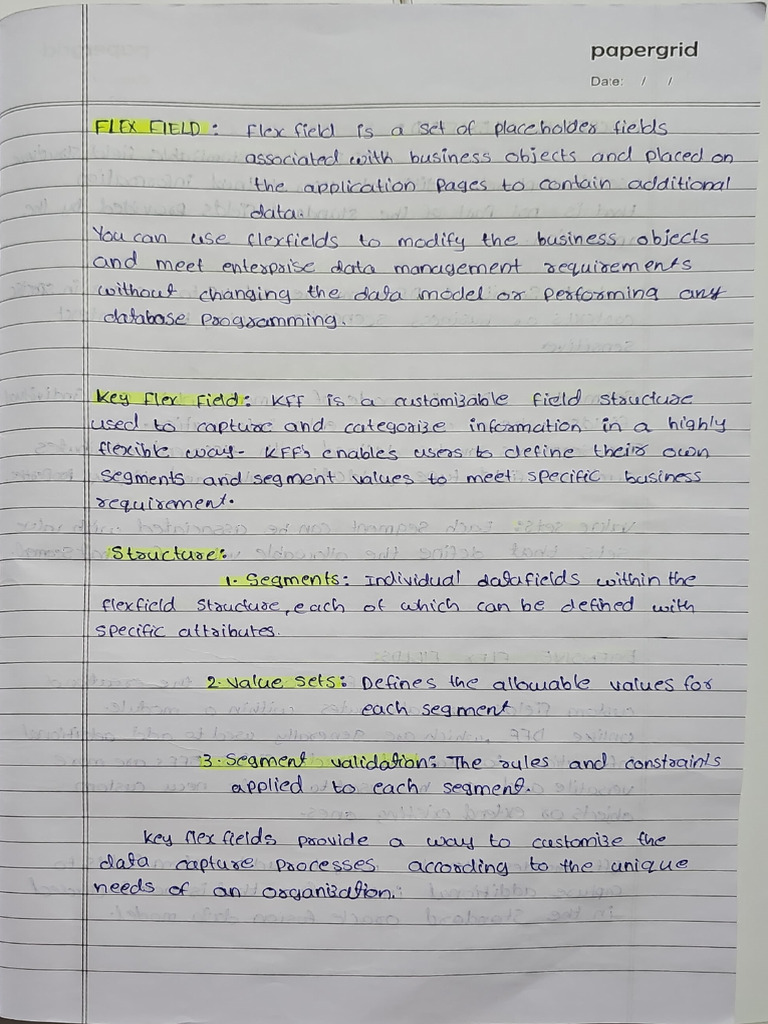 papergrid
Date: / /
FLEX FIELD: Flex field is a set of placeholder fields
associated with business objects and placed on
the application pages to contain additional
data.
You can use flexfields to modify the business objects
and meet enterprise data management requirements
without changing the data model or performing any
database programming.
Key flex field: KFF is a customizable field structure
used to capture and categorize information in a highly
flexible way- KFFs enables users to define their own
segments and segment values to meet specific business
requirement.
Structure:
1. Segments: Individual datafields within the
flexfield structure, each of which can be defined with
specific attributes.
2. Value sets: Defines the allowable values for
each segment
3. Segment validation: The rules and constraints
applied to each segment.
Key flex fields provide a way to customize the
data capture processes according to the unique
needs of an organization.